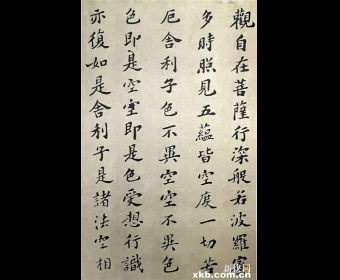 觀自在菩薩行深般若波羅蜜
多時照見五蘊皆空度一切苦
厄舍利子色不異空空不異色
色即是空空即是色受想行識
亦復如是舍利子是諸法空相
xkb.com.cn